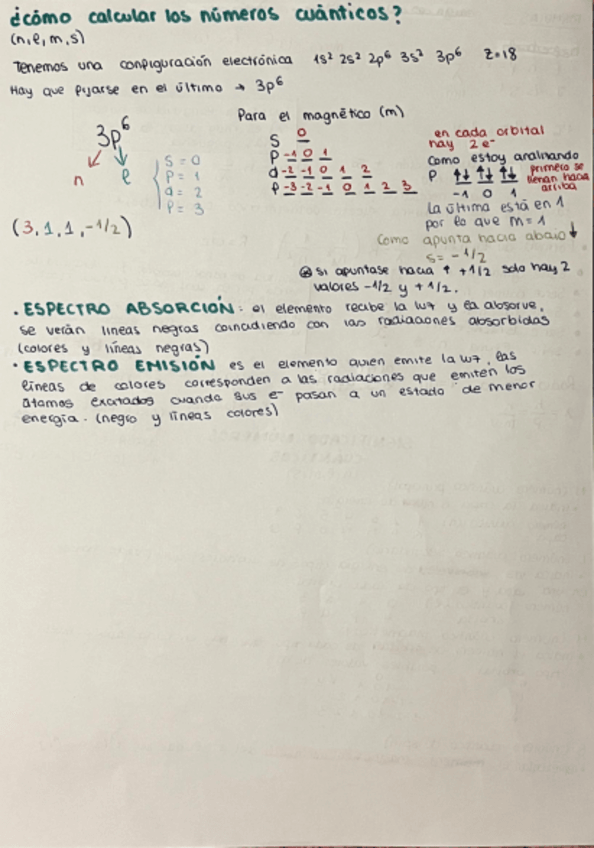 ¿cómo calcular los números cuánticos?
(n, l, m, s)
Tenemos una configuración electrónica 1s² 2s² 2p⁶ 3s² 3p⁶ Z=18
Hay que fijarse en el último → 3p⁶
3p⁶
n l
s = 0
p = 1
d = 2
f = 3
(3, 1, 1, -1/2)
Para el magnético (m)
s 0
p -1 0 1
d -2 -1 0 1 2
f -3 -2 -1 0 1 2 3
en cada orbital
hay 2 e-
Como estoy analinando
p ↑↓ ↑↓ ↑↓
-1 0 1
primero se
llenan hacia
arriba
La última está en 1
por lo que m = 1
Como apunta hacia abajo ↓
s = -1/2
si apuntase hacia ↑ +1/2 solo hay 2
valores -1/2 y +1/2.
· ESPECTRO ABSORCIÓN: el elemento recibe la luz y la absorve,
se verán lineas negras coincidiendo con las radiaciones absorbidas
(colores y líneas negras)
· ESPECTRO EMISIÓN es el elemento quien emite la luz, las
líneas de colores corresponden a las radiaciones que emiten los
átomos excitados cuando sus e- pasan a un estado de menor
energía. (negro y líneas colores)